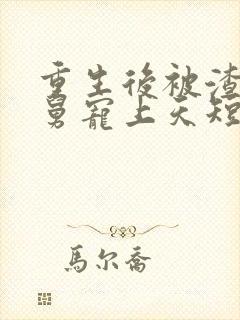 重生後被渣
舅寵上天短
馬尔喬